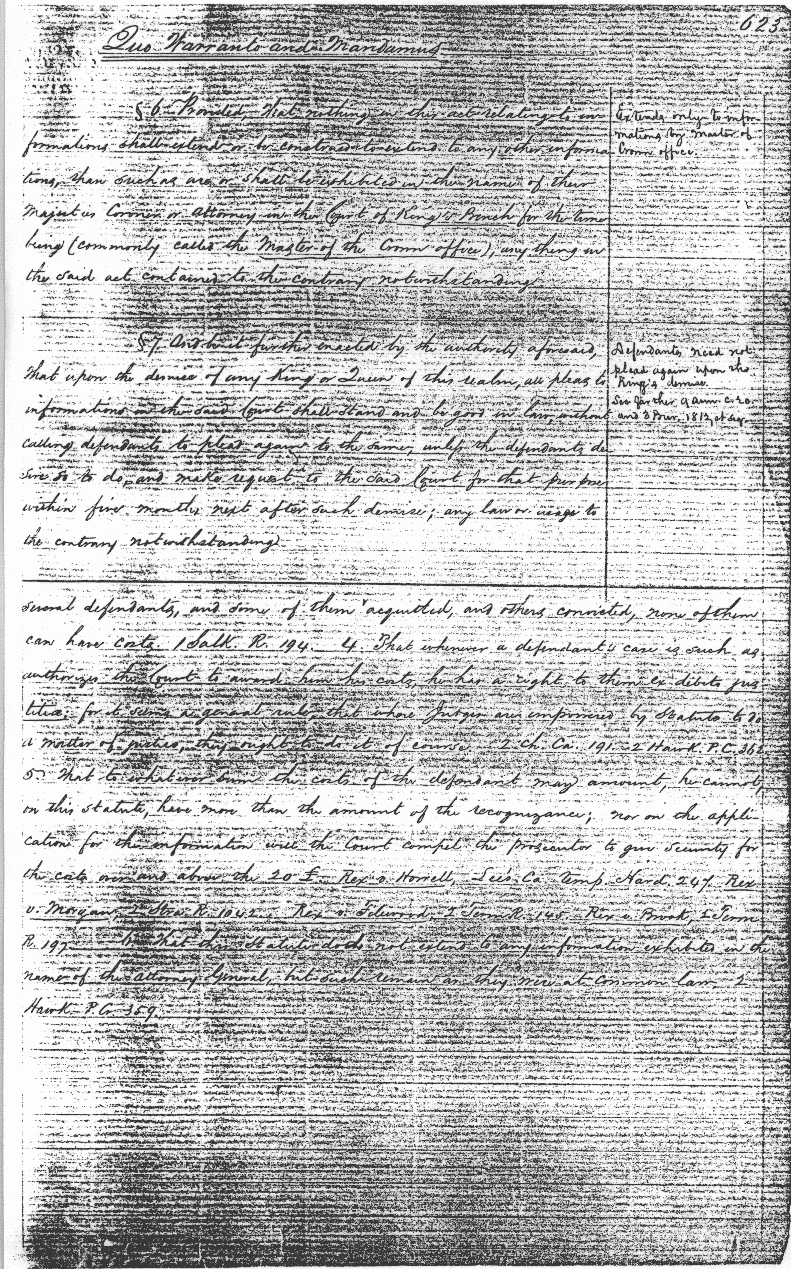 623
Quo Warranto and Mandamus
§ 6. Provided, That nothing in this act relating to in-
formations shall extend or be construed to extend to any other informa-
tions, than such as are or shall be exhibited in the name of their
Majesties Coroner or attorney in the Court of King's Bench for the time
being (commonly called the Master of the Crown office), any thing in
the said act contained to the contrary notwithstanding.
Extends only to infor-
mations by master of
Crown office.
§ 7. And be it further enacted by the authority aforesaid,
That upon the demise of any King or Queen of this realm, all pleas to
informations in the said Court shall stand and be good in law, without
calling defendants to plead again to the same, unless the defendants de-
sire so to do, and make request to the said Court for that purpose
within five months next after such demise; any law or usage to
the contrary notwithstanding.
Defendants need not
plead again upon the
King's demise.
See farther 9 Ann. c. 20.
and 3 Burr. 1812, et seq.
several defendants, and some of them acquitted, and others convicted, none of them
can have costs. 1 Salk. R. 194. 4. That whenever a defendant's case is such as
authorizes the Court to award him his costs, he has a right to them ex debito jus-
titiæ; for it seems a general rule, that where Judges are impowered by Statute to do
a matter of justice, they ought to do it of course. 2 Ch. Ca. 191. 2 Hawk. P.C. 362
5. That to whatever sum the costs of the defendant may amount, he cannot,
on this Statute, have more than the amount of the recognizance; nor on the appli-
cation for the information will the Court compel the Prosecutor to give Security for
the costs over and above the 20 £. Rex v. Howell, Lee's Ca. temp. Hard. 247. Rex
v. Morgan, 2 Stra. R. 1042. Rex v. Filewood, 2 Term R. 145. Rex v. Brook, 2 Term
R. 197. 6. That this Statute doth not extend to any information exhibited in the
name of the attorney General, but such remain as they were at Common law. 2
Hawk. P.C. 359.